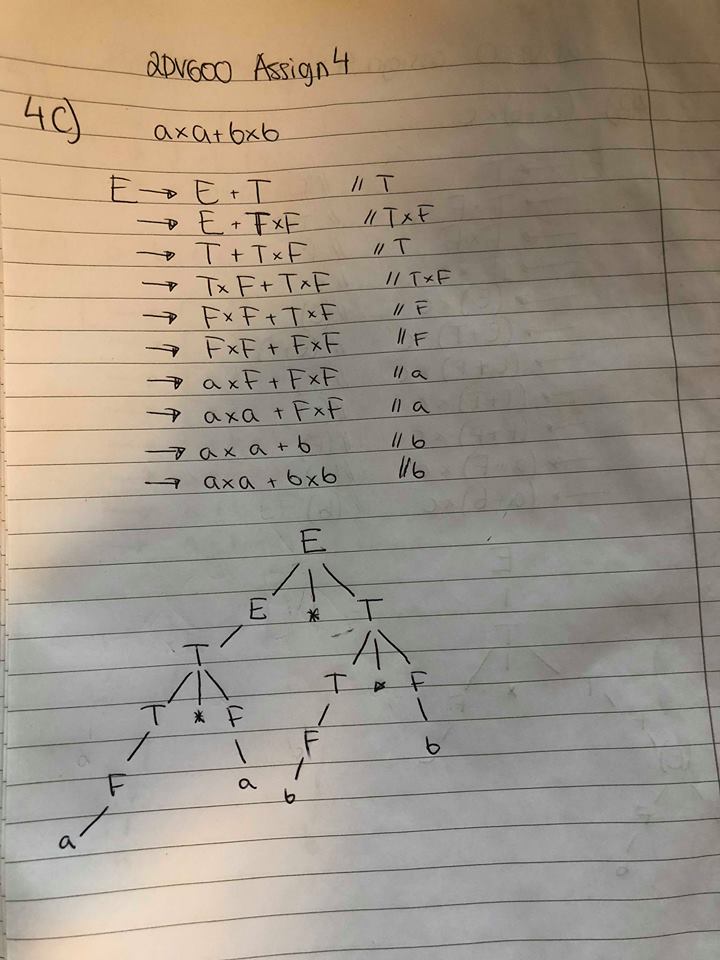 2DV600 Assign 4
4c) a×a+b×b
E → E + T // T
→ E + T×F // T×F
→ T + T×F // T
→ T×F + T×F // T×F
→ F×F + T×F // F
→ F×F + F×F // F
→ a×F + F×F // a
→ a×a + F×F // a
→ a×a + b // b
→ a×a + b×b // b
E
E * T
T T F
T * F F b
F a b
a